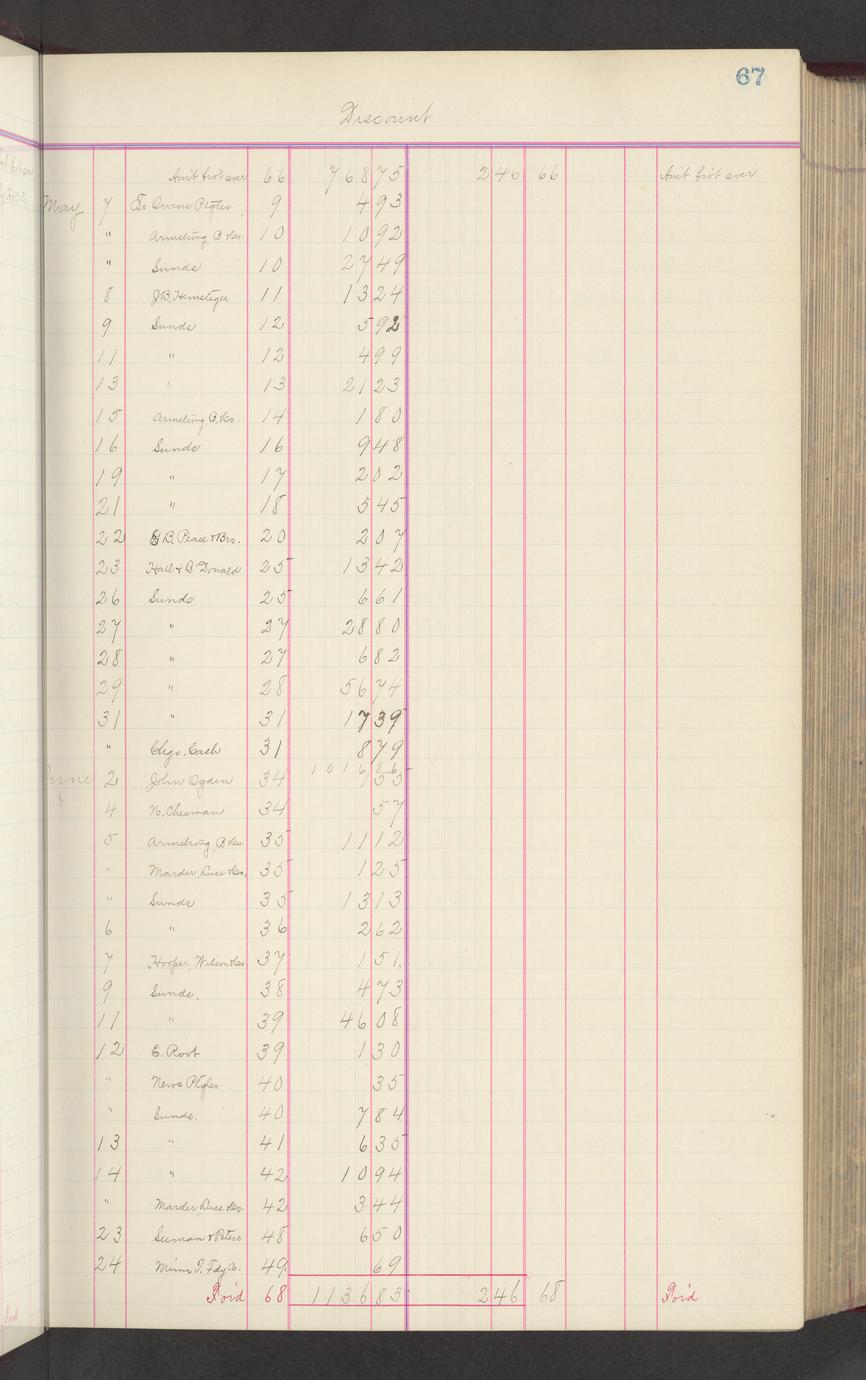 67
Discount
Am't bro't over 66 768 75 2 46 66 Am't bro't over
May 7 To Owens Ptg Co. 9 4 93
" Armstrong, B & Co. 10 10 92
" Sunds 10 27 49
8 J.B. 11 13 24
9 Sunds 12 5 92
11 " 12 4 99
13 " 13 21 23
15 Armstrong, B & Co. 14 1 80
16 Sunds 16 9 48
19 " 17 2 02
21 " 18 5 45
22 B. & Bro. 20 2 07
23 Hall & 25 13 42
26 Sunds 25 6 61
27 " 27 28 80
28 " 27 6 82
29 " 28 56 74
31 " 31 17 39
" Chgo. Cash 31 8 79
1016 86
June 2 John Ogden 34 55
4 N. Chesman 34 57
5 Armstrong, B & Co. 35 11 12
" Marder, Luse & Co. 35 1 25
" Sunds 35 13 13
6 " 36 2 62
7 Hooper, Wilson & Co 37 1 51
9 Sunds. 38 4 73
11 " 39 46 08
12 E. Root 39 1 30
" News Ptg Co. 40 35
" Sunds. 40 7 84
13 " 41 6 35
14 " 42 10 94
" Marder, Luse & Co. 42 3 44
23 48 6 50
24 Minn T. Fdy Co. 49 69
For'd 68 1136 83 2 46 68 For'd